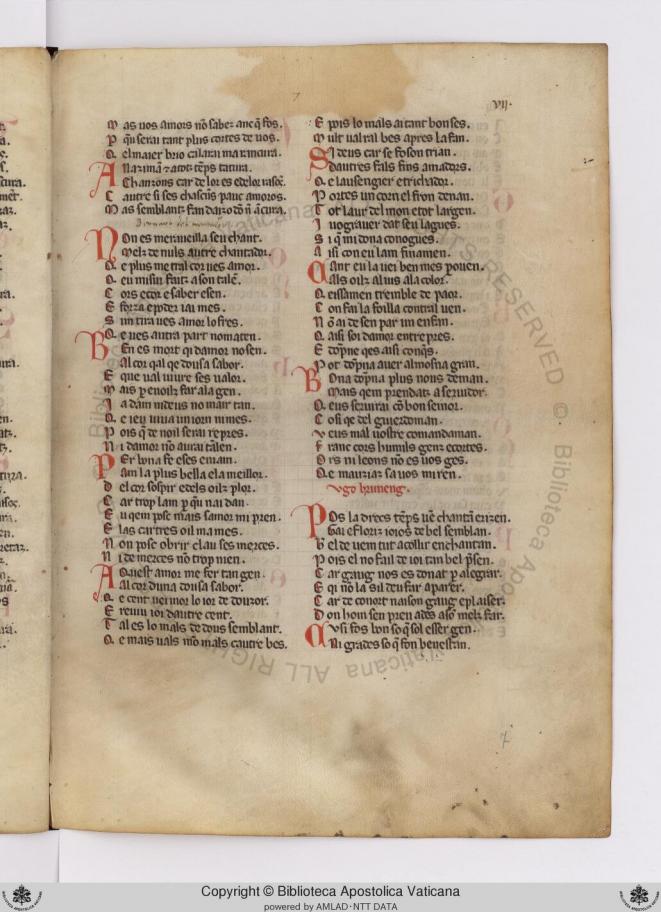 VII.
M as uos amors nõ sabez anc q̃ fos.
P q̃u serai tant plus cortes de uos.
A
L autre si ses chascũs pauc amoros.
M as semblanz fan
N On es merueilla seu chant.
Melz de nuls autre chantador.
Q e plus me tral cor ues amor.
Q eu misui faitz a son talẽ.
C ors e cor e saber e sen.
E forza e poder iai mes.
S im tira ues amor lo fres.
Q e ues autra part nomaten.
B En es mort qi damor no sen.
Al cor qal qe dousa sabor.
E que ual uiure ses ualor.
M ais p enoilz far ala gen.
I a dam nideus no mair tan.
Q e ieu uiua un iorn ni mes.
P ois q̃ de noil serai repres.
N i damor nõ aurai talen.
P Er bona fe e ses enian.
am la plus bella e la meillor.
D el cor sospir e dels oilz plor.
C ar trop lam p q̃u nai dan.
E u qem pose mais samor mi pren.
E las cartres oil ma mes.
N on pose obrir clau ses merces.
N i de merces nõ trop nien.
A Qest amor me fer tan gen.
Al cor duna dousa sabor.
Q e cent uei mor lo ior de douzor.
E reuiu ioi dautre cent.
T al es lo mals de dous semblant.
Q e mais uals mõ mals cautre bes.
E pois lo mals aitant bon ses.
M ult ualral bes apres lafan.
S I deus car se foson trian.
Dautres fals fins amadors.
Q e lausengier e trichador.
P ortes un corn el fron denan.
T ot laur del mon e tot largen.
I uograuer dat seu lagues.
S i q̃ mi dona conogues.
A isi con eu lam finamen.
C ant eu la uei ben mes pouen.
Als oilz al uis ala color.
Q eissamen tremble de paor.
C on fai la foilla contral uen.
N õ ai de sen par un enfan.
Q aisi soi damor entrepres.
E dõpne qes aisi conq̃s.
P ot dõpna auer almosna gran.
B Ona dõpna plus nous deman.
Mais qem prendatz a seruidor.
Q eus seruirai cõ bon seinor.
C osi qe del guierdoman.
V eus mal uostre comandaman.
F ranc cors humils genz e cortes.
O rs ni leons nõ es uos ges.
Q e mauziaz sa uos mi ren.
Vgo bruneng.
P Os la drecs tẽps uẽ chantã e rizen.
Gai e floriz ioios de bel semblan.
B el de uem tut acollir enchantan.
P ois el no fail de ioi tan bel p̃sen.
C ar gaug nos es donat p alegrar.
E qi nõ la sil deu far aparer.
C ar de conort naison gaug e plaiser.
D on hom seu pren ades aso melz far.
C usi fos bon so q̃ sol esser gen.
Ni grades so q̃ fon benestan.
7
Copyright © Biblioteca Apostolica Vaticana
powered by AMLAD·NTT DATA